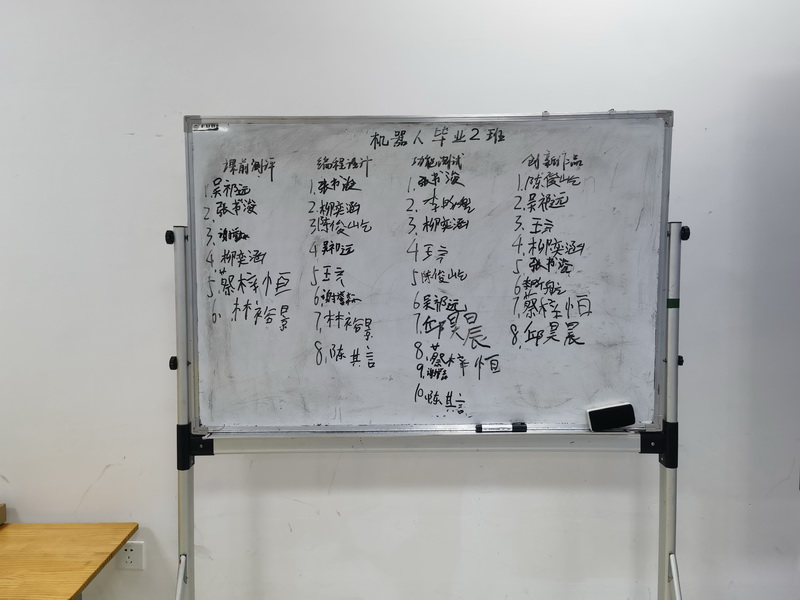 机器人毕业2班
课前测评
1.吴祁远
2.张书浚
3.
4.柳奕涵
5.蔡梓恒
6.林裕景
编程设计
1.张书浚
2.柳奕涵
3.陈俊屹
4.吴祁远
5.王亓
6.
7.林裕景
8.陈其言
功能测试
1.张书浚
2.李
3.柳奕涵
4.王亓
5.陈俊屹
6.吴祁远
7.邱昊晨
8.蔡梓恒
9.
10.陈其言
创新作品
1.陈俊屹
2.吴祁远
3.王亓
4.柳奕涵
5.张书浚
6.
7.蔡梓恒
8.邱昊晨